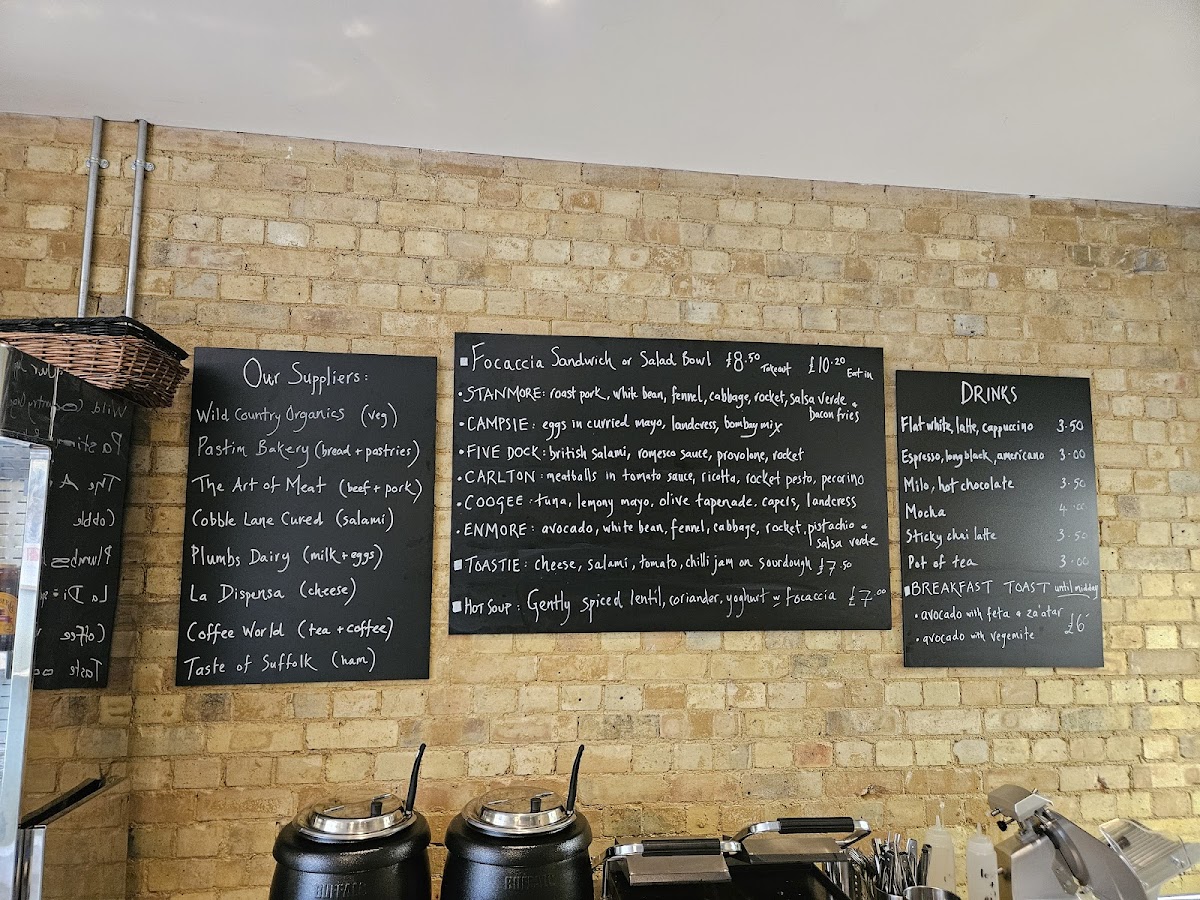 Our Suppliers:
Wild Country Organics (veg)
Pastim Bakery (bread + pastries)
The Art of Meat (beef + pork)
Cobble Lane Cured (salami)
Plumbs Dairy (milk + eggs)
La Dispensa (cheese)
Coffee World (tea + coffee)
Taste of Suffolk (ham)
Focaccia Sandwich or Salad Bowl £8.50 Takeout £10.20 Eat in
STANMORE: roast pork, white bean, fennel, cabbage, rocket, salsa verde &
bacon fries
CAMPSIE: eggs in curried mayo, landcress, bombay mix
FIVE DOCK: british salami, romesco sauce, provolone, rocket
CARLTON: meatballs in tomato sauce, ricotta, rocket pesto, pecorino
COOGEE: tuna, lemony mayo, olive tapenade, capers, landcress
ENMORE: avocado, white bean, fennel, cabbage, rocket, pistachio &
salsa verde
TOASTIE: cheese, salami, tomato, chilli jam on sourdough £7.50
HOT SOUP: Gently spiced lentil, coriander, yoghurt w focaccia £7.00
DRINKS
Flat white, latte, cappuccino 3.50
Espresso, long black, americano 3.00
Milo, hot chocolate 3.50
Mocha 4.00
Sticky chai latte 3.50
Pot of tea 3.00
BREAKFAST TOAST until midday
avocado with feta & za'atar £6
avocado with vegemite
BUFFALO
BUFFALO